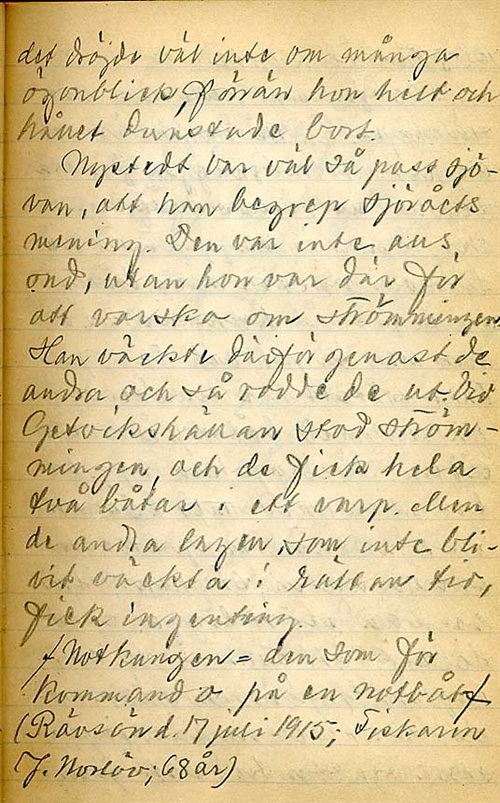 det dröjde väl inte om många
ögonblick, förrän hon helt och
hållet dunstade bort.
Nystedt var väl så pass sjö-
van, att han begrep sjöråets
mening. Den var inte alls
ond, utan hon var där för
att varsko om strömmingen.
Han väckte därför genast de
andra och så rodde de ut. Vid
Getvikshällan stod ström-
mingen, och de fick hela
två båtar i ett varp. Men
de andra lagen, som inte bli-
vit väckta i rättan tid,
fick ingenting.
/Notkungen = den som för
kommando på en notbåt/
(Rävsön d. 17 juli 1915; Fiskaren
J. Norlöv; 68 år)